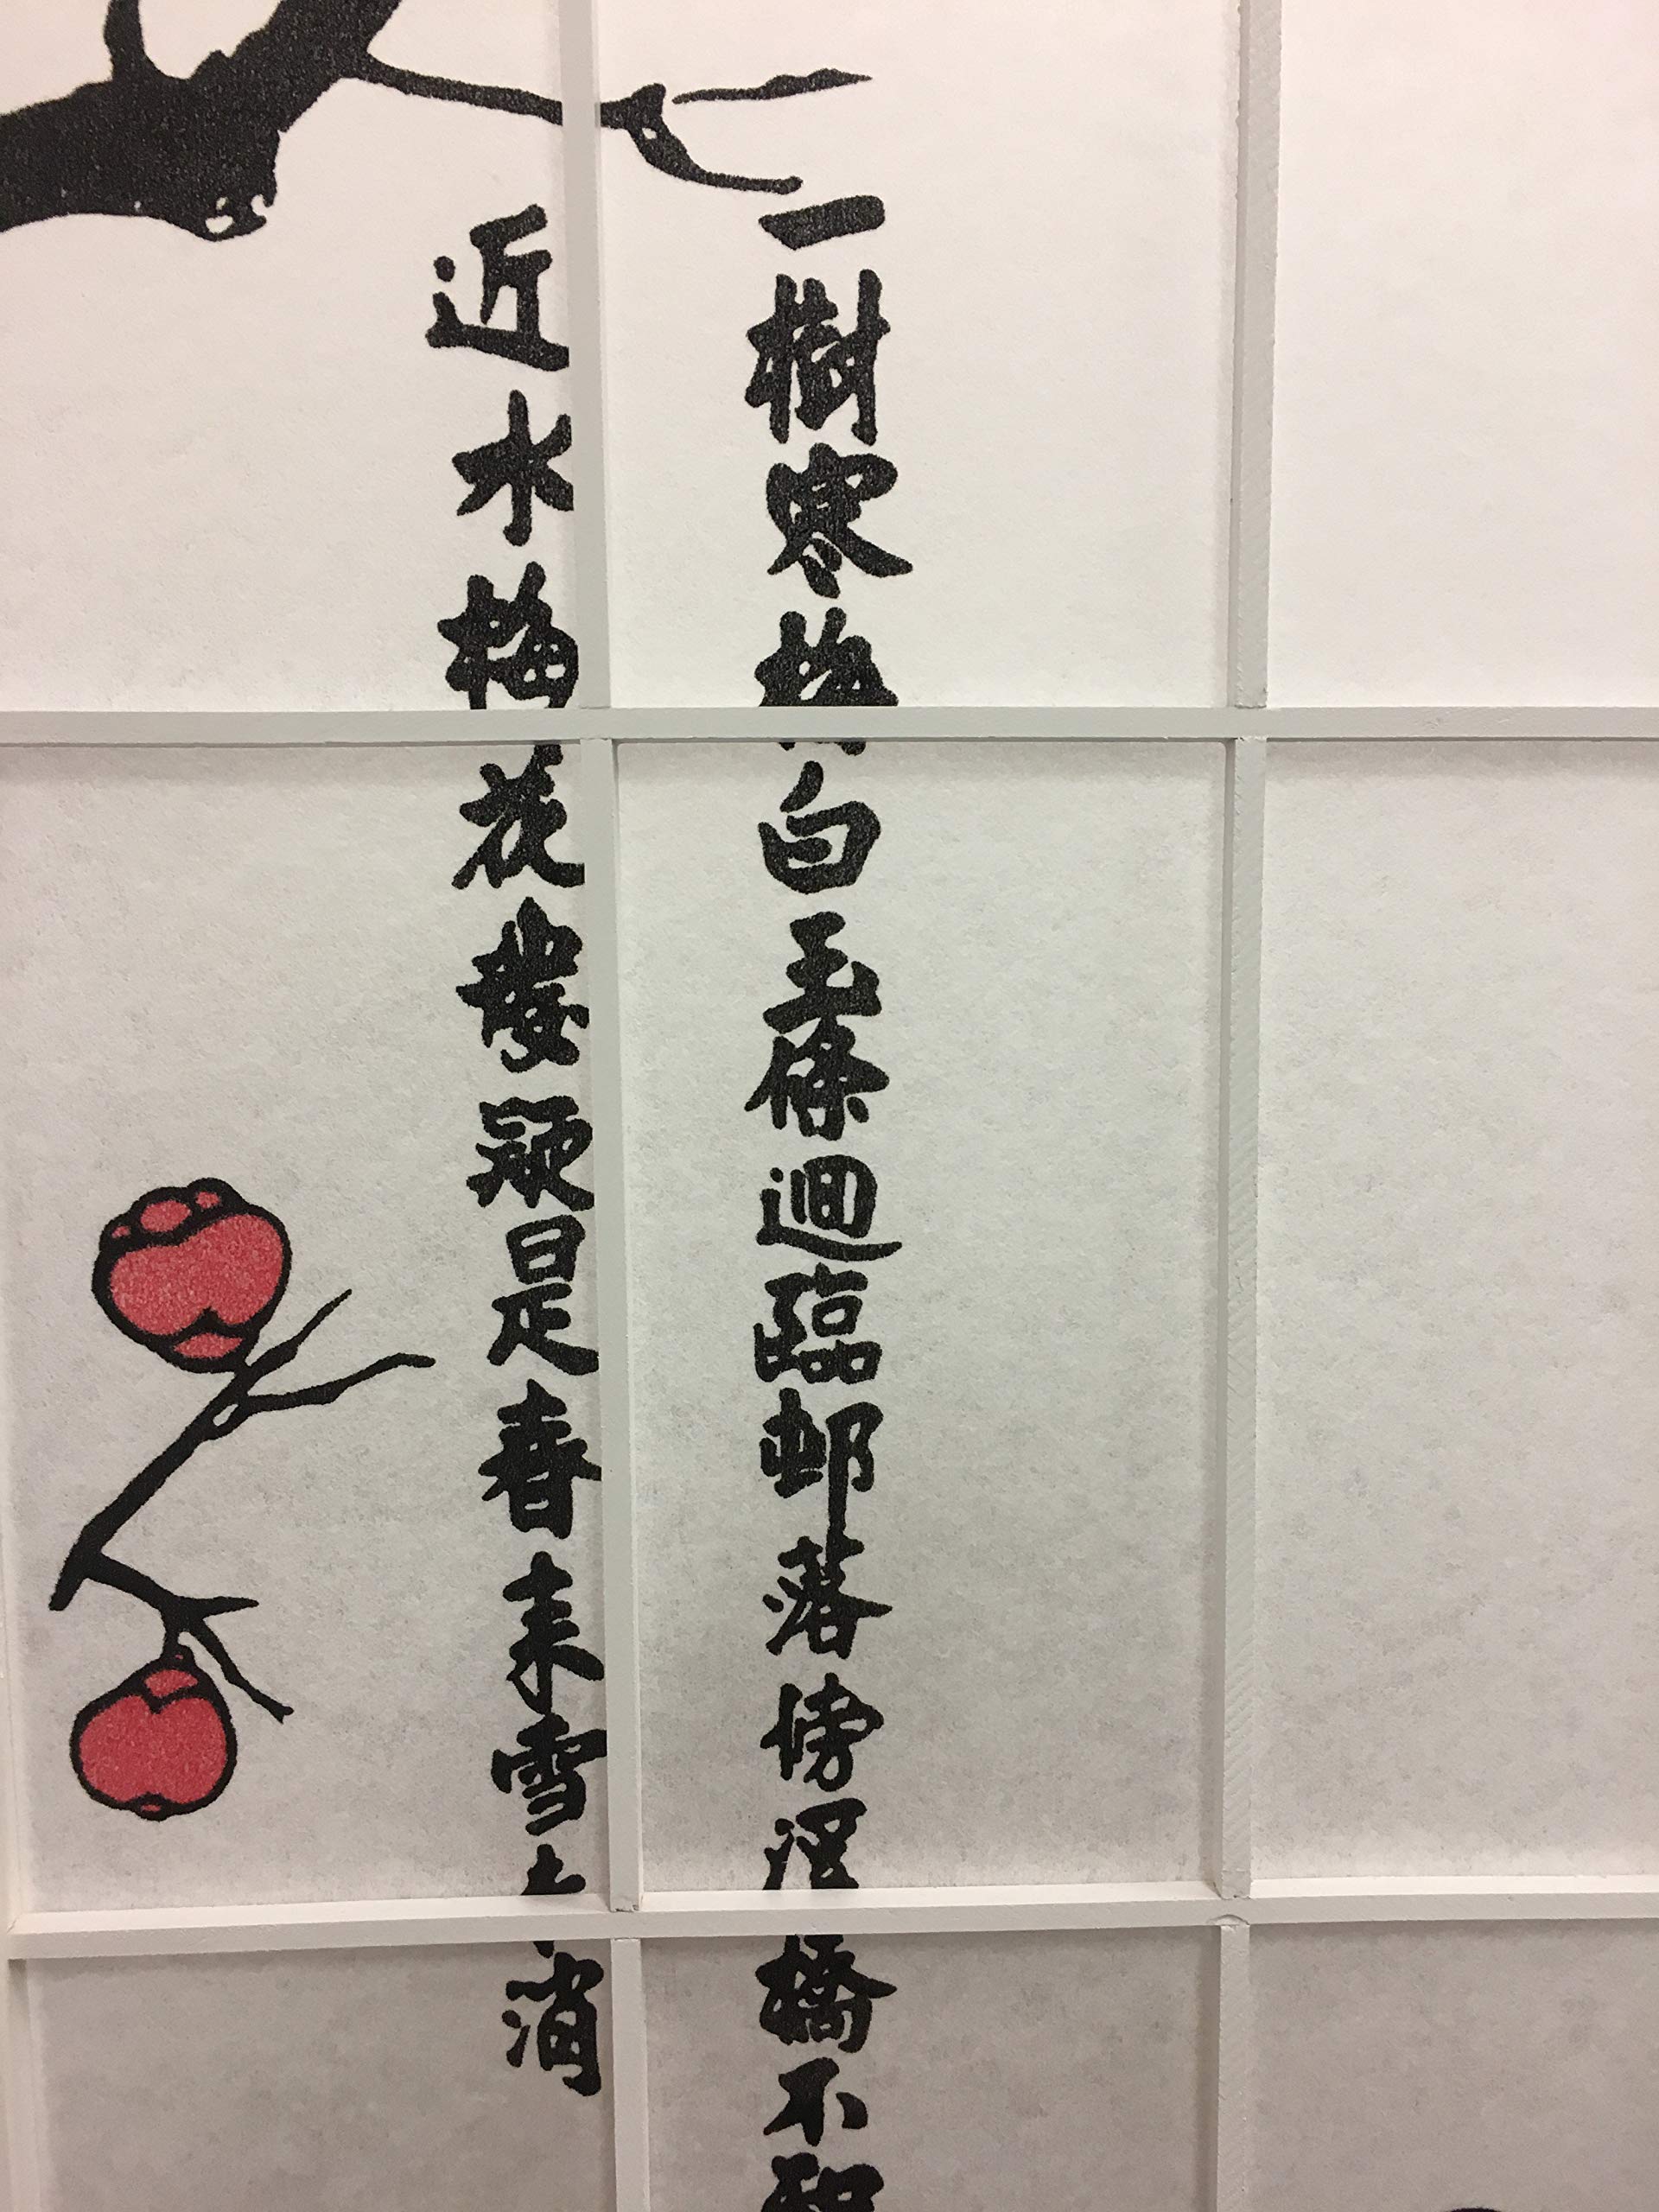 一樹寒梅白玉條迴臨邨落傍溪橋不知
近水梅花發疑是春來雪消